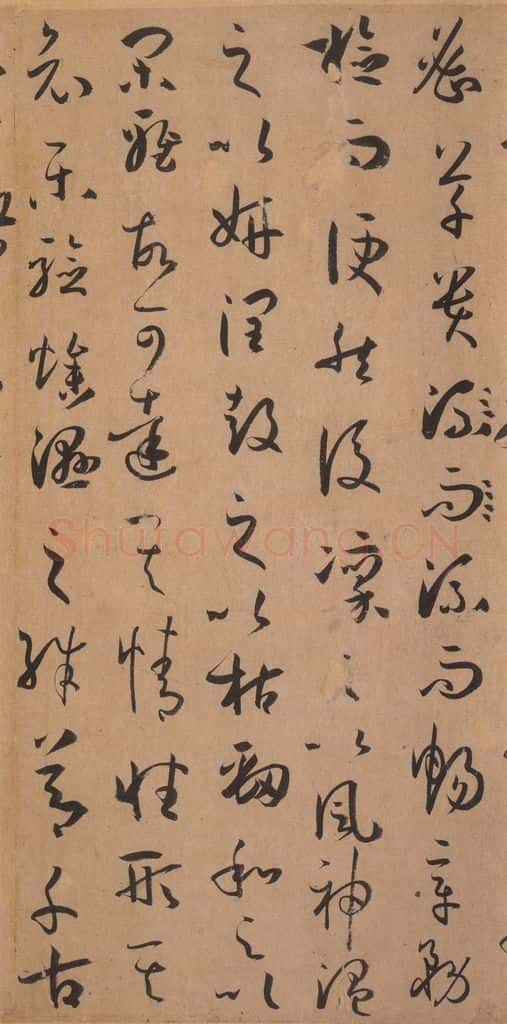 密草貴流而流而暢章務
檢而便然後凜之以風神溫
之以妍潤鼓之以枯勁和之以
閑雅故可達其情性形其
哀樂驗燥濕之殊節千古
Shufawang.CN